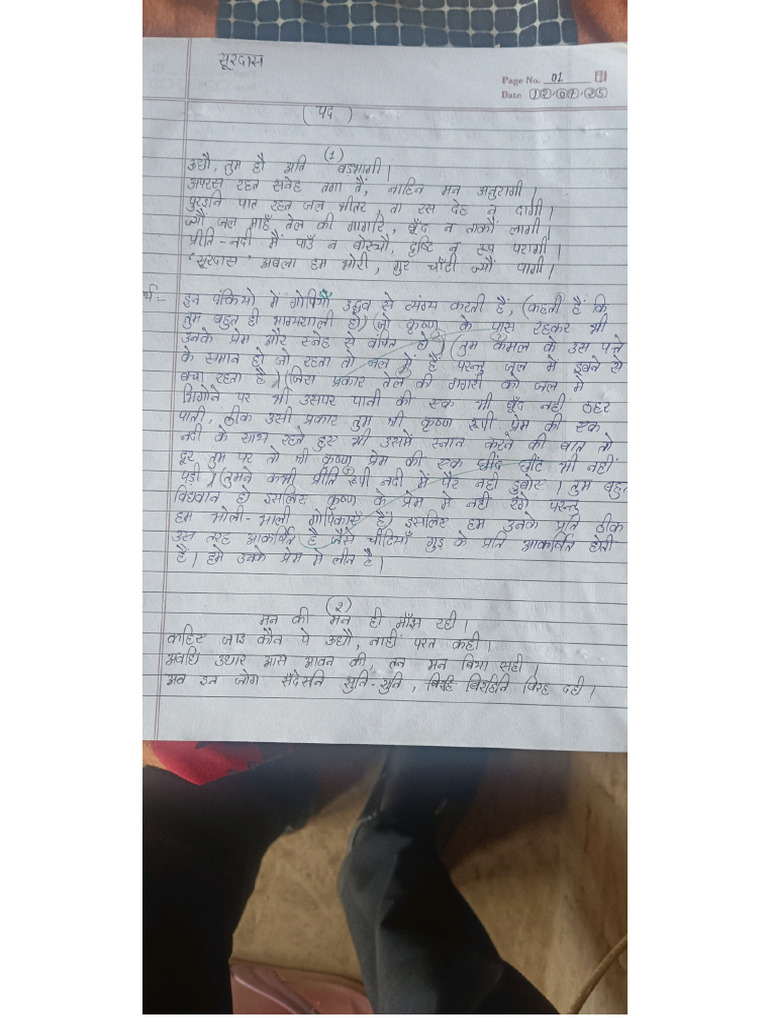 सूरदास
Page No. 01
Date 12.04.25
(पद)
(1)
ऊधौ, तुम हौ अति बड़भागी।
अपरस रहत सनेह तगा तैं, नाहिन मन अनुरागी।
पुरइनि पात रहत जल भीतर, ता रस देह न दागी।
ज्यौं जल माहँ तेल की गागरि, बूँद न ताकौं लागी।
प्रीति-नदी मैं पाउँ न बोरयौ, दृष्टि न रूप परागी।
'सूरदास' अबला हम भोरी, गुर चाँटी ज्यौं पागी।
र्थ:- इन पंकियो में गोपियाँ उद्धव से व्यंग्य करती हैं, (कहती हैं कि
तुम बहुत ही भाग्यशाली हो) (जो कृष्ण के पास रहकर भी
उनके प्रेम और स्नेह से वंचित हो) (तुम कमल के उस पत्ते
के समान हो जो रहता तो जल में है परन्तु जल में डूबने से
बचा रहता है।) (जिस प्रकार तेल की गगरी को जल मे
भिगोने पर भी उसपर पानी की एक भी बूँद नही ठहर
पाती, ठीक उसी प्रकार तुम श्री कृष्ण रूपी प्रेम की एक
नदी के साथ रहते हुए भी उसमें स्नान करने की बात तो
दूर तुम पर तो श्री कृष्ण प्रेम की एक छींट भी नहीं
पड़ी।) (तुमने कभी प्रीति रूपी नदी में पैर नही डुबोए। तुम बहुत
विद्यवान हो इसलिए कृष्ण के प्रेम मे नही रँगे परन्तु
हम भोली-भाली गोपिकाएँ हैं) इसलिए हम उनके प्रति ठीक
उस तरह आकर्षित है जैसे चीटियाँ गुड़ के प्रति आकर्षित होती
हैं। हमे उनके प्रेम मे लीन है।
(2)
मन की मन ही माँझ रही।
कहिए जाउ कौन पे ऊधौ, नाहीं परत कही।
अवधि अधार आस आवन की, तन मन बिथा सही।
अब इन जोग सँदेसनि सुनि-सुनि, बिरहिनि बिरह दही।